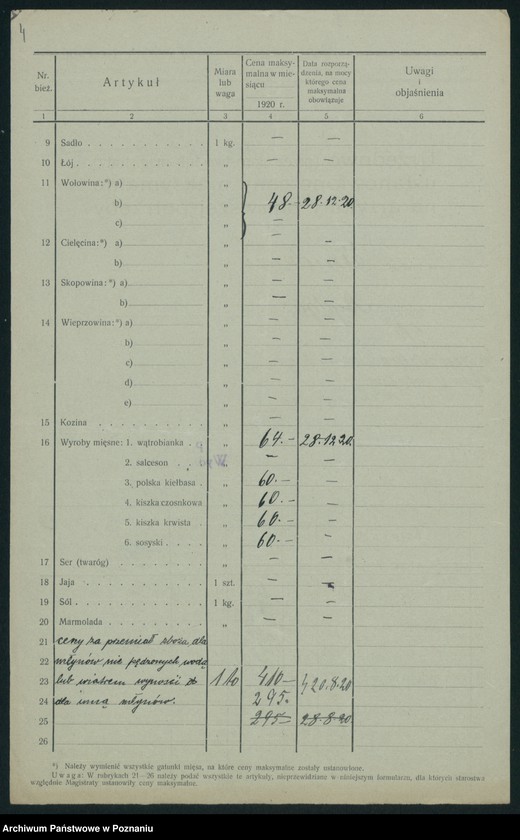 4
Nr. bież. Artykuł Miara lub waga Cena maksymalna w miesiącu 1920 r. Data rozporządzenia, na mocy którego cena maksymalna obowiązuje Uwagi i objaśnienia
1 2 3 4 5 6
9 Sadło 1 kg. — —
10 Łój „ — —
11 Wołowina:*) a) „
b) „ 48.- 28.12.20
c) „ —
12 Cielęcina:*) a) „ — —
b) „ — —
13 Skopowina:*) a) „ — —
b) „ — —
14 Wieprzowina:*) a) „ — —
b) „ — —
c) „ — —
d) „ — —
e) „ — —
15 Kozina „ — —
16 Wyroby mięsne: 1. wątrobianka „ 64.- 28.12.20.
2. salceson „ — —
3. polska kiełbasa „ 60.- —
4. kiszka czosnkowa „ 60.- —
5. kiszka krwista „ 60.- —
6. sosyski „ 60.- —
17 Ser (twaróg) „ — —
18 Jaja 1 szt. —
19 Sól 1 kg. — —
20 Marmolada „ — —
21 ceny za przemiał zboża dla
22 młynów nie pędzonych wodą
23 lub wiatrem wynosić 410- 20.8.20
24 dla młynów. 295.
25 295- 28-8-20
26
*) Należy wymienić wszystkie gatunki mięsa, na które ceny maksymalne zostały ustanowione.
Uwaga: W rubrykach 21—26 należy podać wszystkie te artykuły, nieprzewidziane w niniejszym formularzu, dla których starostwa
względnie Magistraty ustanowiły ceny maksymalne.
Archiwum Państwowe w Poznaniu